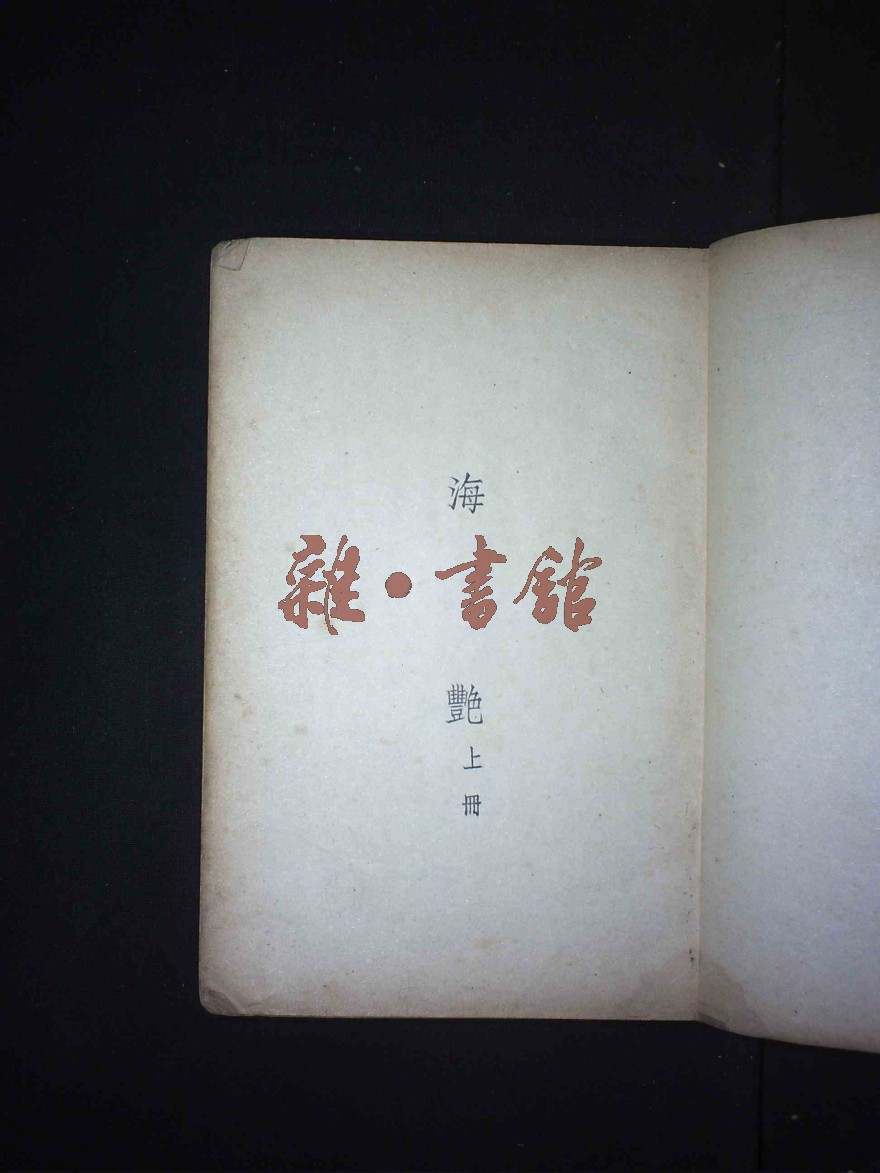 海
雜・書館
艷
上
冊